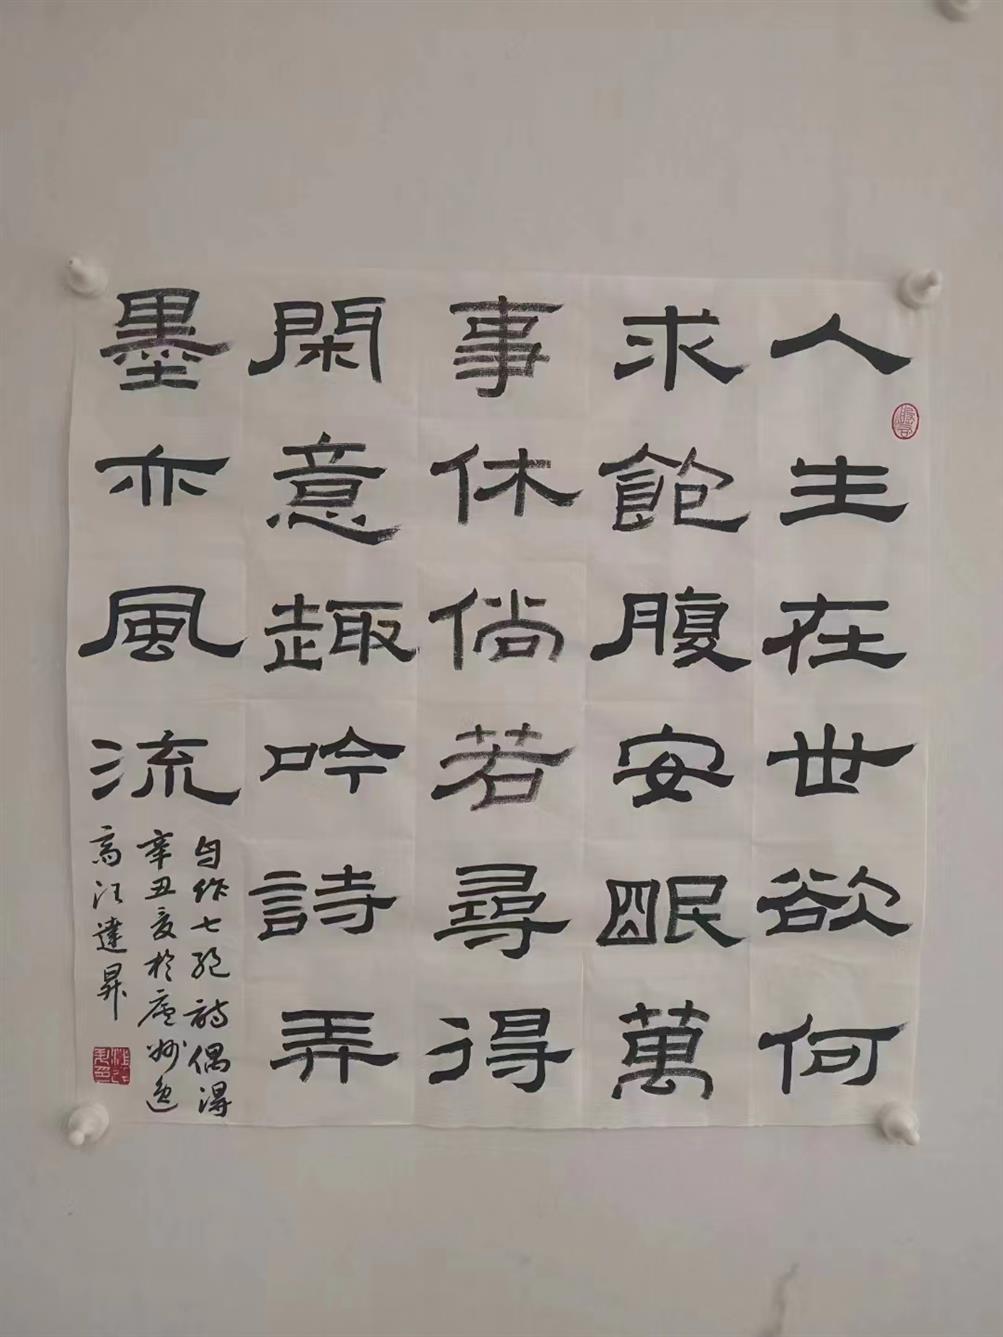 人生在世欲何
求飽腹安眠萬
事休倘若尋得
閑意趣吟詩弄
墨亦風流
自作七絕詩偶得
辛丑夏於廬州逸
高汪達昇